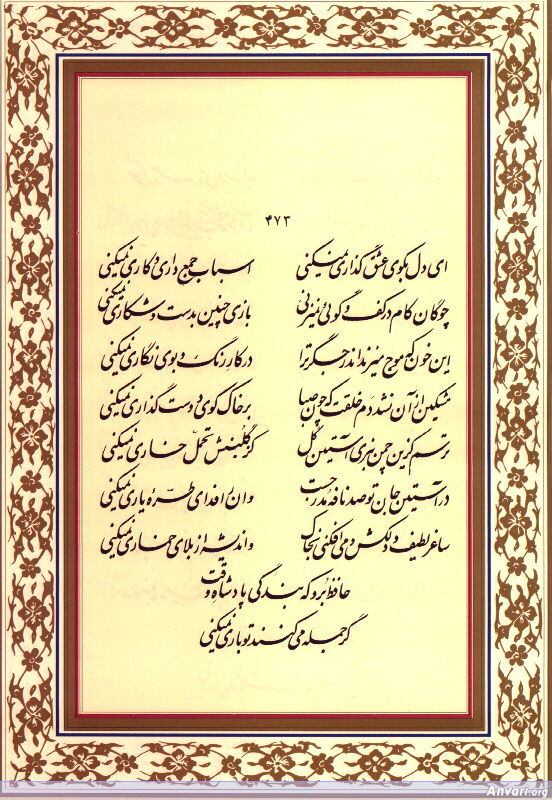 ۴۷۳
ای دل بکوی عشق گذاری نمیکنی اسباب جمع داری و کاری نمیکنی
چوگان کام در کف و گوئی نمیزنی بازی چنین بدست و شکاری نمیکنی
این خون که موج میزند اندر جگر ترا در کار رنگ و بوی نگاری نمیکنی
مشکین از آن نشد دم خلقت که چون صبا بر خاک کوی دوست گذاری نمیکنی
ترسم کزین چمن نبری آستین گل کز گلبنش تحمل خاری نمیکنی
در آستین جان تو صد نافه مدرجست وان را فدای طره یاری نمیکنی
ساغر لطیف و دلکش و می افکنی بخاک و اندیشه از بلای خماری نمیکنی
حافظ برو که بندگی پادشاه وقت
گر جمله میکنند تو باری نمیکنی
Anvari.org